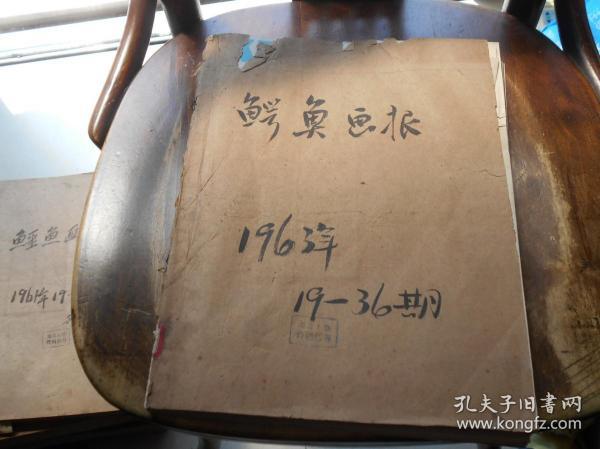 鳄鱼画报
1963年
19—36期
鳄鱼画
1961年19-
孔夫子旧书网
www.kongfz.com